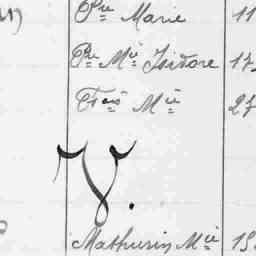 Pre Marie 11
Pre Mie Isidore 17
Fçois Mie 27
V.
Mathurin Mie 19